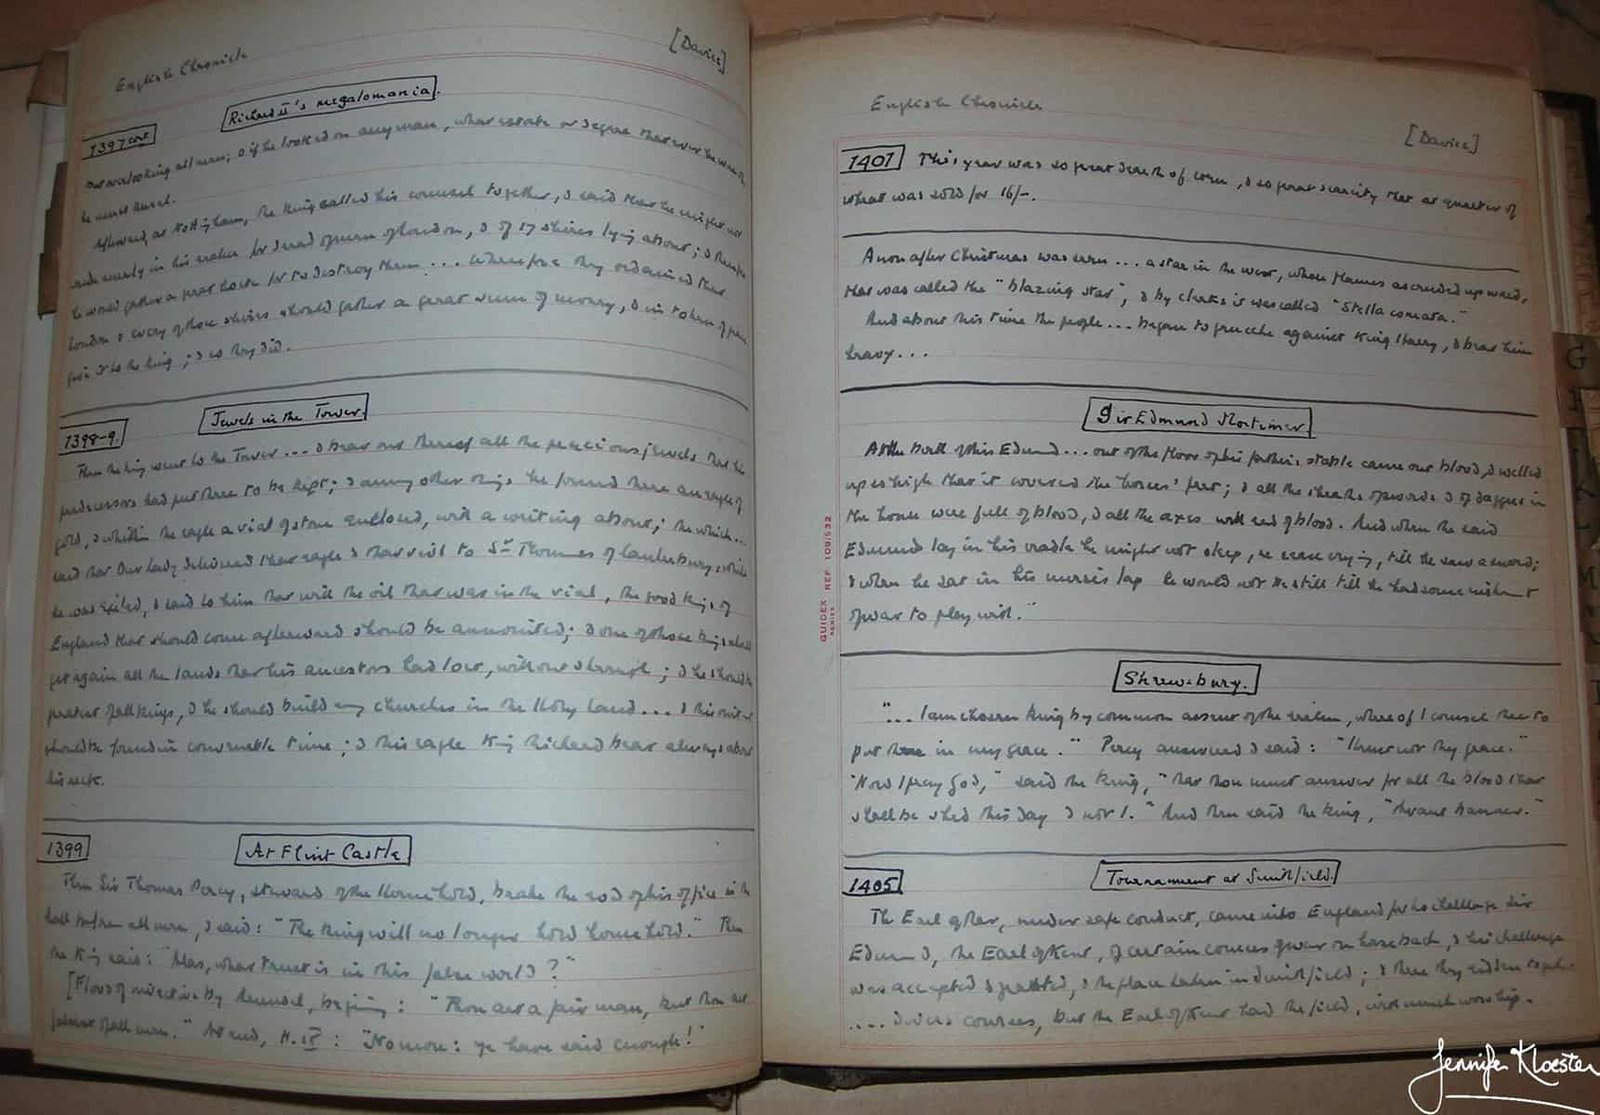 English Chronicle
[Davies]
Richard II's megalomania.
1397 cont.
but overlooking all men; & if he looked on any man, what estate or degree that ever he were of,
he must kneel.
Afterward, at Nottingham, the King called his counsel together, & said that he might not
ride surely in his realm for dread of men of London, & of 17 shires lying about; & therefore
he would gather a great host for to destroy them ... Wherefore they ordained that
London & every of those shires should gather a great sum of money, & in token of peace
give it to the King; & so they did.
1398-9.
Jewels in the Tower.
Then the king went to the Tower ... & bear out thereof all the precious jewels that his
predecessors had put there to be kept; & among other things he found there an eagle of
gold, & within the eagle a vial of stone enclosed, with a writing about; the which...
said that Our Lady delivered that eagle & that vial to St Thomas of Canterbury, while
he was exiled, & said to him that with the oil that was in the vial, the good kings of
England that should come afterward should be annointed; & one of those kings should
get again all the lands that his ancestors had lost, without strength; & he should be
greatest of all kings, & he should build many churches in the Holy Land... & this
should be found in convenable time; & this eagle King Richard bear always about
his neck.
1399
At Flint Castle
Then Sir Thomas Percy, steward of the Household, brake the rod of his office in the
hall before all men, & said: "The King will no longer hold household." Then
the King said: "Alas, what trust is in this false world?"
[Flood of invective by , beginning: "Thou art a fair man, but thou art
falsest of all men." At end, H. IV: "No more: ye have said enough!"
English Chronicle
[Davies]
1401 This year was so great dearth of corn, & so great scarcity that a quarter of
wheat was sold for 16/-.
Anon after Christmas was seen ... a star in the west, whose flames ascended upward,
that was called the "blazing star", & by clerks it was called "Stella comata."
And about this time the people... began to grucche against King Harry, & bear him
heavy...
Sir Edmund Mortimer
At the birth of this Edmund... out of the floor of his father's stable came out blood, & welled
up so high that it covered the horses' feet; & all the sheaths of swords & of daggers in
the house were full of blood, & all the axes with red of blood. And when the said
Edmund lay in his cradle he might not sleep, ne cease crying, till he saw a sword;
& when he sat in his nurse's lap he would not be still till he had some
of war to play with."
GUIDEX REF 109/532
SERIES
Shrewsbury.
"... I am chosen King by common assent of the realm, whereof I counsel thee to
put thee in my grace." Percy answered & said: "I trust not thy grace."
"Now I pray God," said the King, "that thou must answer for all the blood that
shall be shed this day & not I." And then said the King, "Avant banner."
1405
Tournament at Smithfield
The Earl of Mar, under safe conduct, came into England for to challenge Sir
Edmund, the Earl of Kent, of certain courses of war on horseback, & his challenge
was accepted & granted, & the place taken in Smithfield; & there they ridden together
.... divers courses, but the Earl of Kent had the field, with much worship.
G
Jennifer Kloester